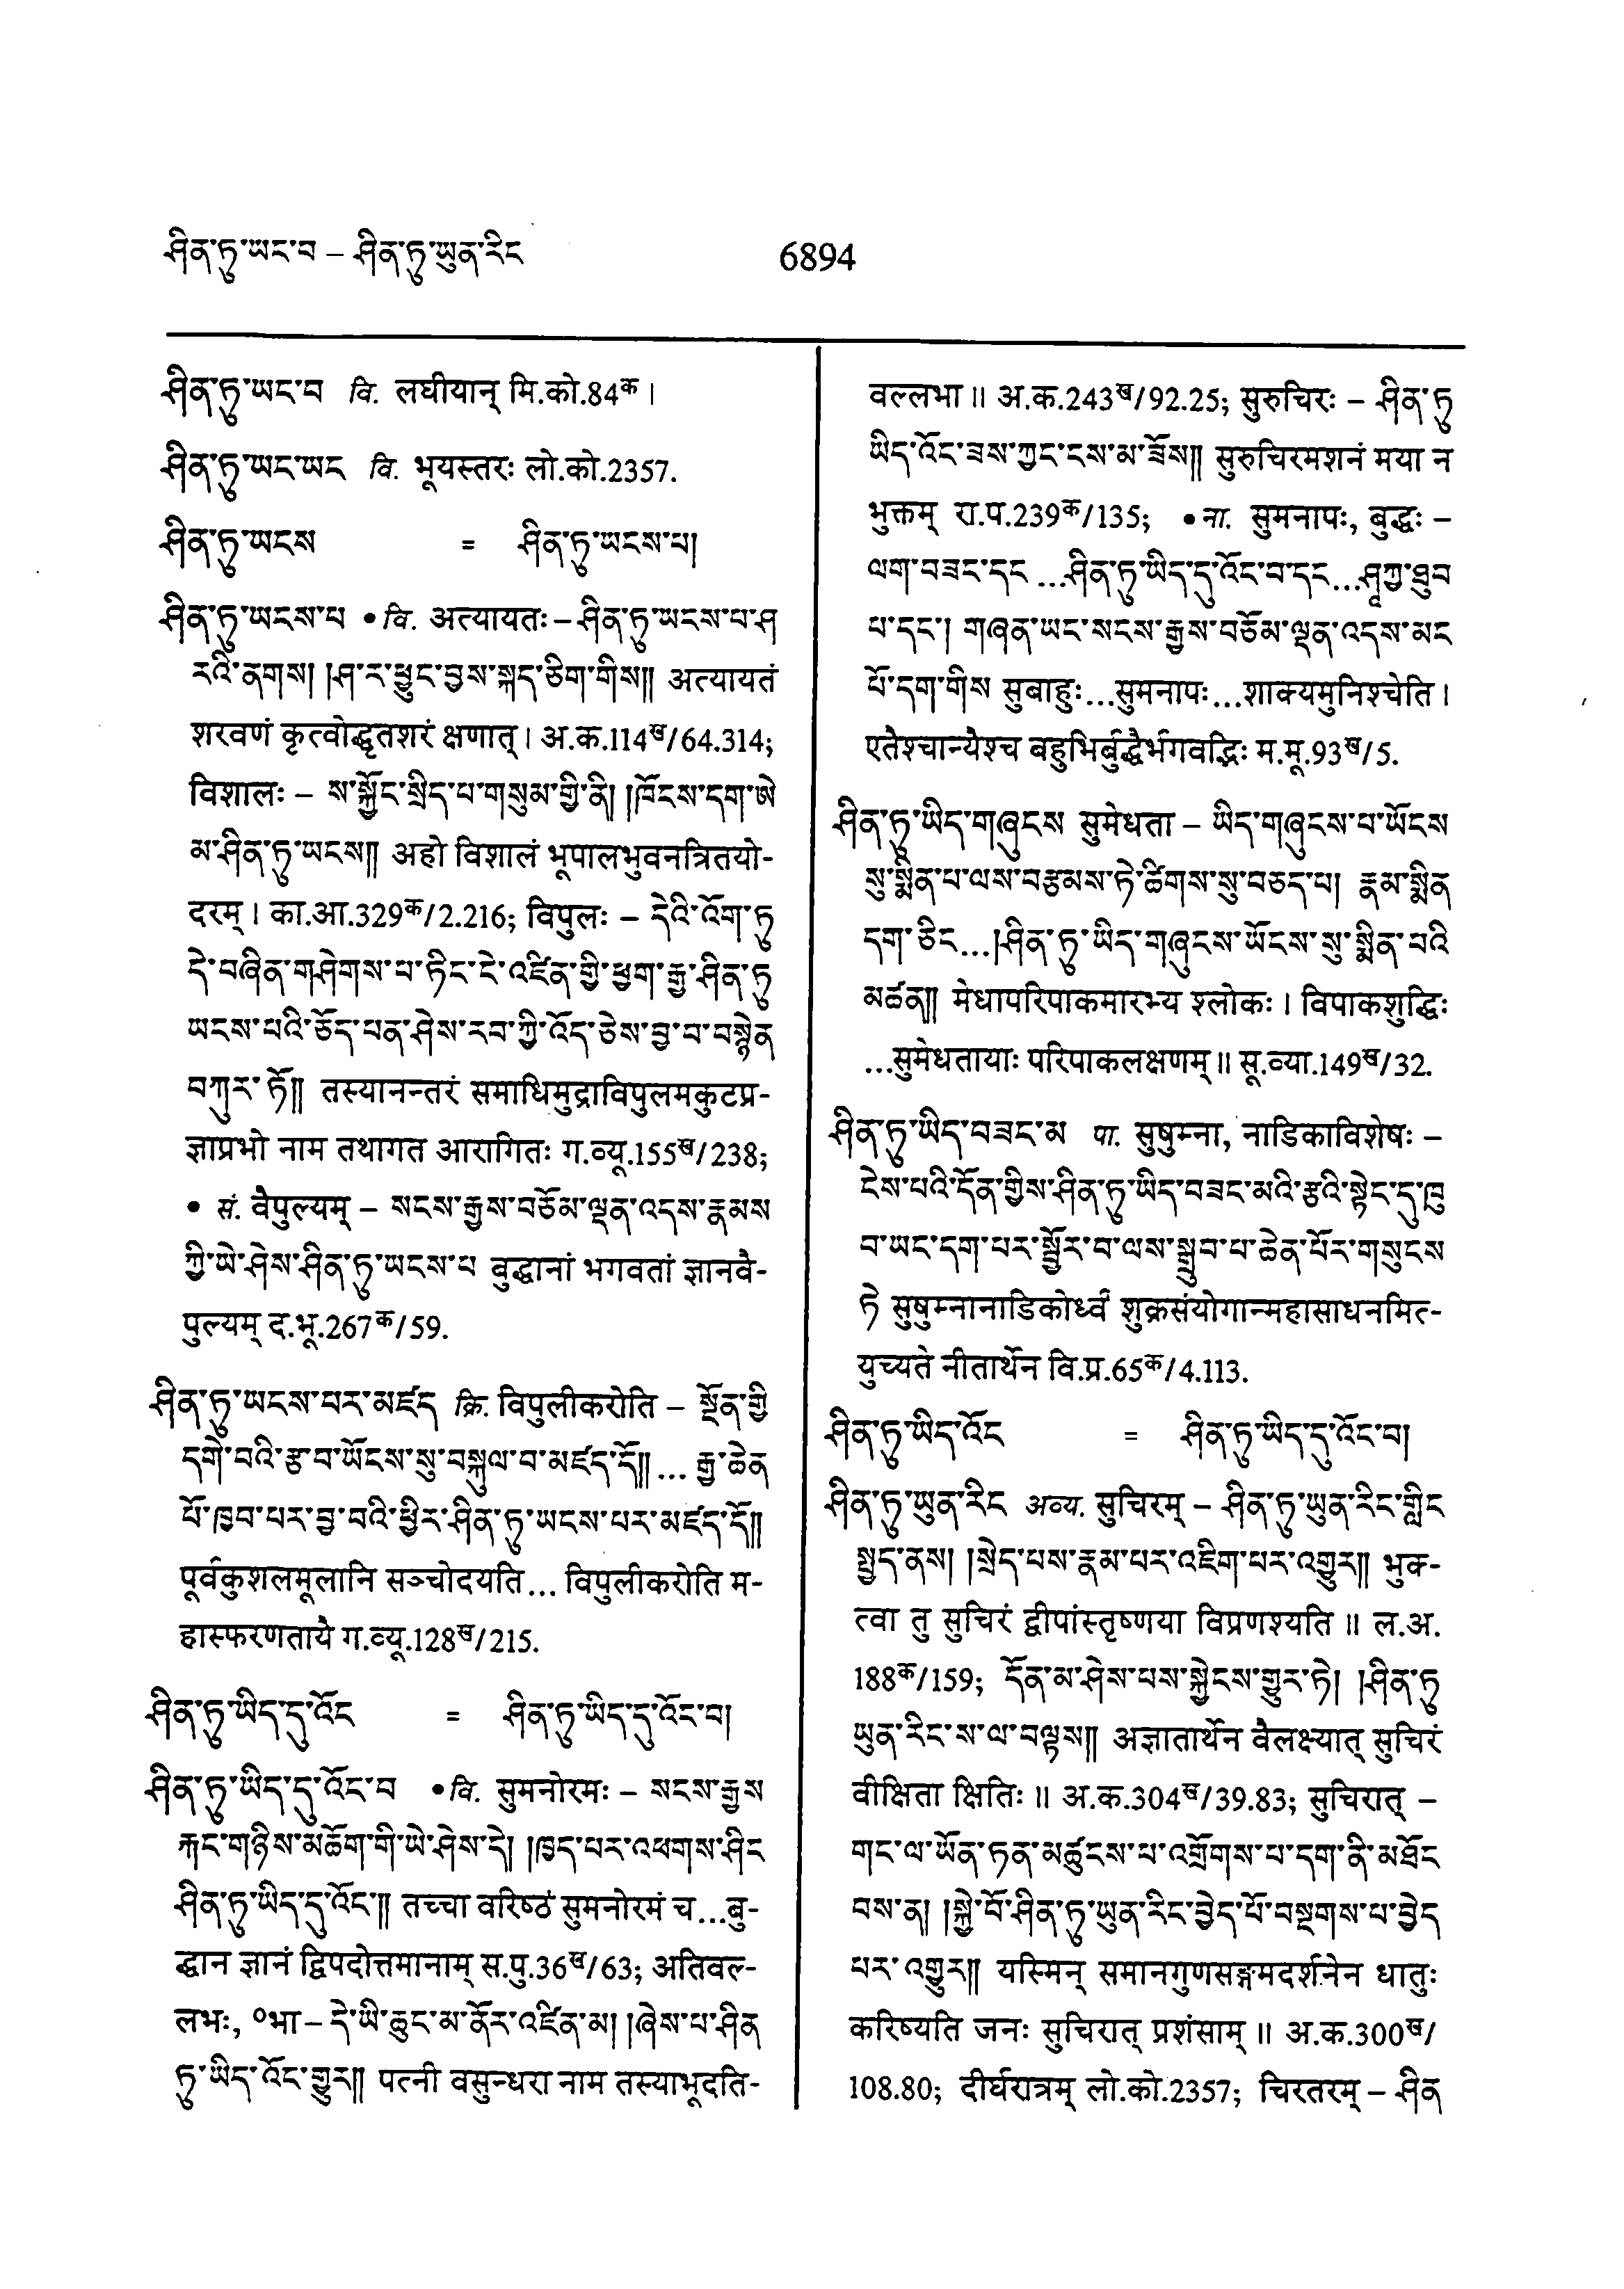 ཤིན་ཏུ་ཡང་བ – ཤིན་ཏུ་ཡུན་རིང
6894
ཤིན་ཏུ་ཡང་བ वि. लघीयान् मि.को.84क ।
ཤིན་ཏུ་ཡང་ཡང वि. भूयस्तरः लो.को.2357.
ཤིན་ཏུ་ཡངས = ཤིན་ཏུ་ཡངས་པ།
ཤིན་ཏུ་ཡངས་པ • वि. अत्यायतः – ཤིན་ཏུ་ཡངས་པ་ཤ
རའི་ནགས། །ཤ་ར་ཕྱུང་བྱས་སྐད་ཅིག་གིས།། अत्यायतं
शरवणं कृत्वोद्धृतशरं क्षणात् । अ.क.114ख/64.314;
विशालः – ས་སྐྱོང་སྲིད་པ་གསུམ་གྱི་ནི། །ཁོངས་དག་ཨེ
མ་ཤིན་ཏུ་ཡངས།། अहो विशालं भूपालभुवनत्रितयो-
दरम् । का.आ.329क/2.216; विपुलः – དེའི་འོག་ཏུ
དེ་བཞིན་གཤེགས་པ་ཏིང་ངེ་འཛིན་གྱི་ཕྱག་རྒྱ་ཤིན་ཏུ
ཡངས་པའི་ཅོད་པན་ཤེས་རབ་ཀྱི་འོད་ཅེས་བྱ་བ་བསྙེན
བཀུར་ཏོ།། तस्यानन्तरं समाधिमुद्राविपुलमकुटप्र-
ज्ञाप्रभो नाम तथागत आरागितः ग.व्यू.155ख/238;
• सं. वैपुल्यम् – སངས་རྒྱས་བཅོམ་ལྡན་འདས་རྣམས
ཀྱི་ཡེ་ཤེས་ཤིན་ཏུ་ཡངས་པ बुद्धानां भगवतां ज्ञानवै-
पुल्यम् द.भू.267क/59.
ཤིན་ཏུ་ཡངས་པར་མཛད क्रि. विपुलीकरोति – སྔོན་གྱི
དགེ་བའི་རྩ་བ་ཡོངས་སུ་བསྐུལ་བ་མཛད་དོ།། ... རྒྱ་ཆེན
པོ་ཁྱབ་པར་བྱ་བའི་ཕྱིར་ཤིན་ཏུ་ཡངས་པར་མཛད་དོ།།
पूर्वकुशलमूलानि सञ्चोदयति ... विपुलीकरोति म-
हास्फरणतायै ग.व्यू.128ख/215.
ཤིན་ཏུ་ཡིད་དུ་འོང = ཤིན་ཏུ་ཡིད་དུ་འོང་བ།
ཤིན་ཏུ་ཡིད་དུ་འོང་བ • वि. सुमनोरमः – སངས་རྒྱས
རྐང་གཉིས་མཆོག་གི་ཡེ་ཤེས་དེ། །ཁྱད་པར་འཕགས་ཤིང
ཤིན་ཏུ་ཡིད་དུ་འོང་།། तच्चा वरिष्ठं सुमनोरमं च...बु-
द्धान ज्ञानं द्विपदोत्तमानाम् स.पु.36ख/63; अतिवल्-
लभः, ०भा – དེ་ཡི་ཆུང་མ་ནོར་འཛིན་མ། །ཞེས་པ་ཤིན
ཏུ་ཡིད་འོང་གྱུར།། पत्नी वसुन्धरा नाम तस्याभूदति-
वल्लभा ॥ अ.क.243ख/92.25; सुरुचिरः – ཤིན་ཏུ
ཡིད་འོང་ཟས་ཀྱང་ངས་མ་ཟོས།། सुरुचिरमशनं मया न
भुक्तम् रा.प.239क/135; • ना. सुमनापः, बुद्धः –
ལག་བཟང་དང ...ཤིན་ཏུ་ཡིད་དུ་འོང་བ་དང...ཤཱཀྱ་ཐུབ
པ་དང་། གཞན་ཡང་སངས་རྒྱས་བཅོམ་ལྡན་འདས་མང
པོ་དག་གིས सुबाहुः...सुमनापः...शाक्यमुनिश्चेति ।
एतैश्चान्यैश्च बहुभिर्बुद्धैर्भगवद्भिः म.मू.93ख/5.
ཤིན་ཏུ་ཡིད་གཞུངས सुमेधता – ཡིད་གཞུངས་པ་ཡོངས
སུ་སྨིན་པ་ལས་བརྩམས་ཏེ་ཚིགས་སུ་བཅད་པ། རྣམ་སྨིན
དག་ཅིང...།ཤིན་ཏུ་ཡིད་གཞུངས་ཡོངས་སུ་སྨིན་པའི
མཚན།། मेधापरिपाकमारभ्य श्लोकः । विपाकशुद्धिः
...सुमेधतायाः परिपाकलक्षणम् ॥ सू.व्या.149ख/32.
ཤིན་ཏུ་ཡིད་བཟང་མ पा. सुषुम्ना, नाडिकाविशेषः –
ངེས་པའི་དོན་གྱིས་ཤིན་ཏུ་ཡིད་བཟང་མའི་རྩའི་སྟེང་དུ་ཁུ
བ་ཡང་དག་པར་སྦྱོར་བ་ལས་སྒྲུབ་པ་ཆེན་པོར་གསུངས
ཏེ सुषुम्नानाडिकोर्ध्वं शुक्रसंयोगान्महासाधनमित्-
युच्यते नीतार्थेन वि.प्र.65क/4.113.
ཤིན་ཏུ་ཡིད་འོང = ཤིན་ཏུ་ཡིད་དུ་འོང་བ།
ཤིན་ཏུ་ཡུན་རིང अव्य. सुचिरम् – ཤིན་ཏུ་ཡུན་རིང་གླིང
སྤྱད་ནས། །སྲེད་པས་རྣམ་པར་འཇིག་པར་འགྱུར།། भुक्-
त्वा तु सुचिरं द्वीपांस्तृष्णया विप्रणश्यति ॥ ल.अ.
188क/159; དོན་མ་ཤེས་པས་སྐྱེངས་གྱུར་ཏེ། །ཤིན་ཏུ
ཡུན་རིང་ས་ལ་བལྟས།། अज्ञातार्थेन वैलक्ष्यात् सुचिरं
वीक्षिता क्षितिः ॥ अ.क.304ख/39.83; सुचिरात् –
གང་ལ་ཡོན་ཏན་མཚུངས་པ་འགྲོགས་པ་དག་ནི་མཐོང
བས་ན། །སྐྱེ་བོ་ཤིན་ཏུ་ཡུན་རིང་བྱེད་པོ་བསྔགས་པ་བྱེད
པར་འགྱུར།། यस्मिन् समानगुणसङ्गमदर्शनेन धातुः
करिष्यति जनः सुचिरात् प्रशंसाम् ॥ अ.क.300ख/
108.80; दीर्घरात्रम् लो.को.2357; चिरतरम् – ཤིན